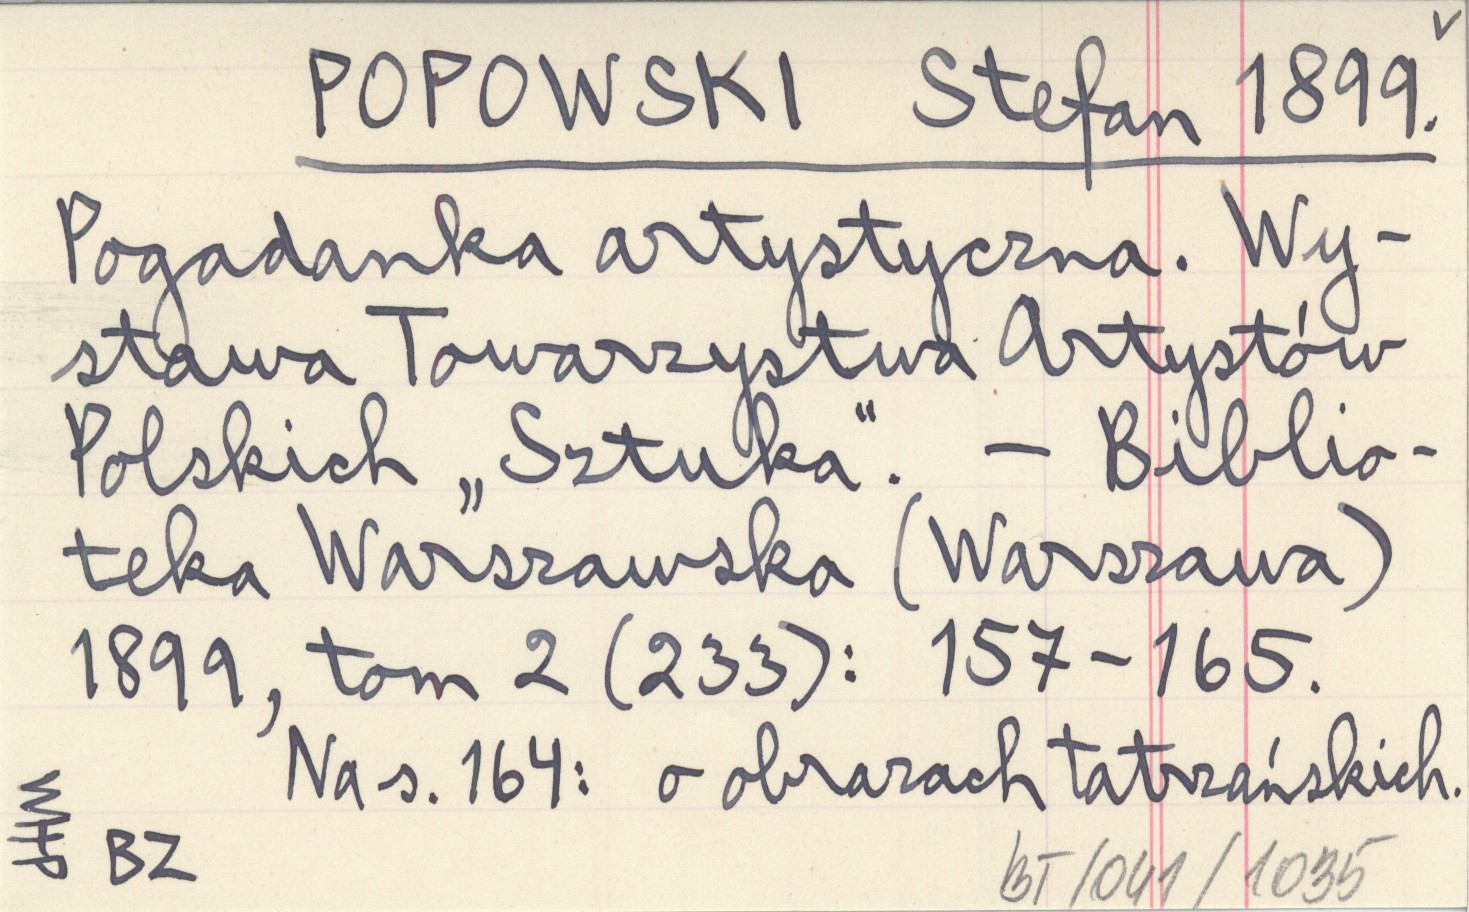 v
POPOWSKI Stefan 1899.
Pogadanka artystyczna. Wy-
stawa Towarzystwa Artystów
Polskich „Sztuka“. — Biblio-
teka Warszawska (Warszawa)
1899, tom 2 (233): 157-165.
Na s. 164: o obrazach tatrzańskich.
BZ
BT/041/1035